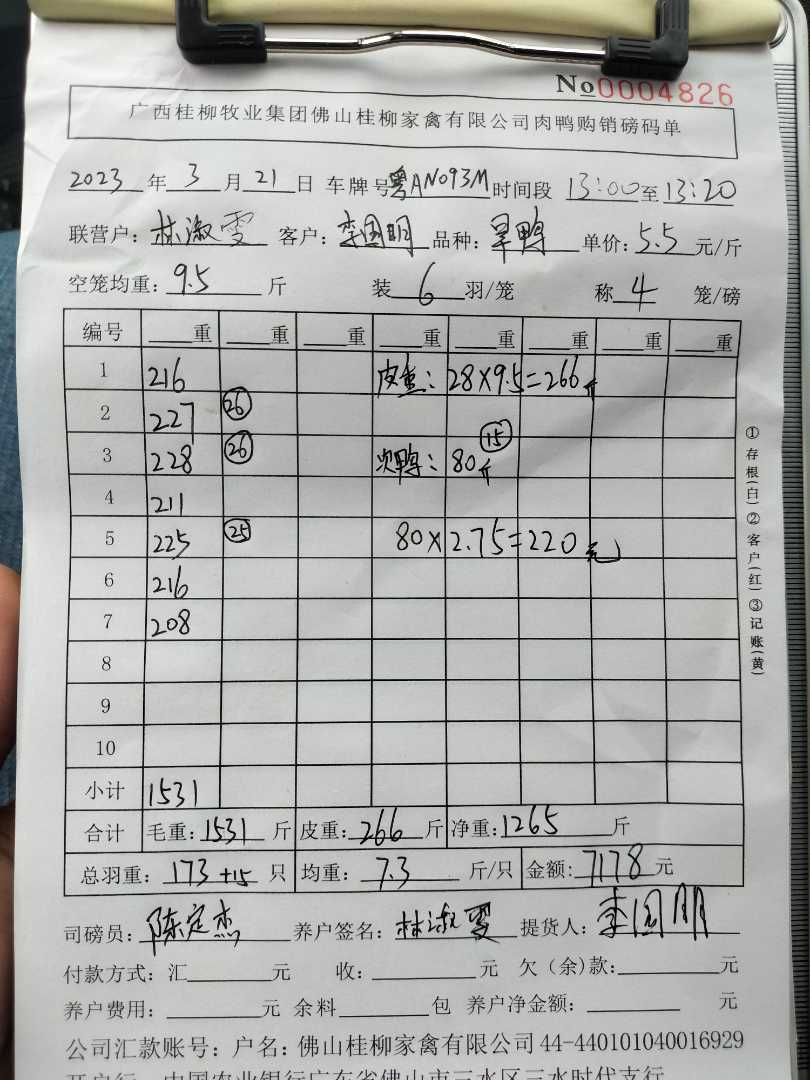 No0004826
广西桂柳牧业集团佛山桂柳家禽有限公司肉鸭购销磅码单
2023 年 3 月 21 日 车牌号 粤AN093M 时间段 13:00 至 13:20
联营户: 林淑雯 客户: 李国明 品种: 旱鸭 单价: 5.5 元/斤
空笼均重: 9.5 斤 装 6 羽/笼 称 4 笼/磅
编号 重 重 重 重 重 重 重 重
1 216 皮重: 28×9.5=266斤
2 227 26
3 228 26 次鸭: 80斤 15
4 211
5 225 25 80×2.75=220元
6 216
7 208
8
9
10
小计 1531
合计 毛重: 1531 斤 皮重: 266 斤 净重: 1265 斤
总羽重: 173+15 只 均重: 7.3 斤/只 金额: 7178 元
司磅员: 陈定杰 养户签名: 林淑雯 提货人: 李国明
付款方式: 汇 元 收: 元 欠(余)款: 元
养户费用: 元 余料 包 养户净金额: 元
公司汇款账号: 户名: 佛山桂柳家禽有限公司 44-440101040016929
开户行: 中国农业银行广东省佛山市三水区三水时代支行
①存根(白)②客户(红)③记账(黄)